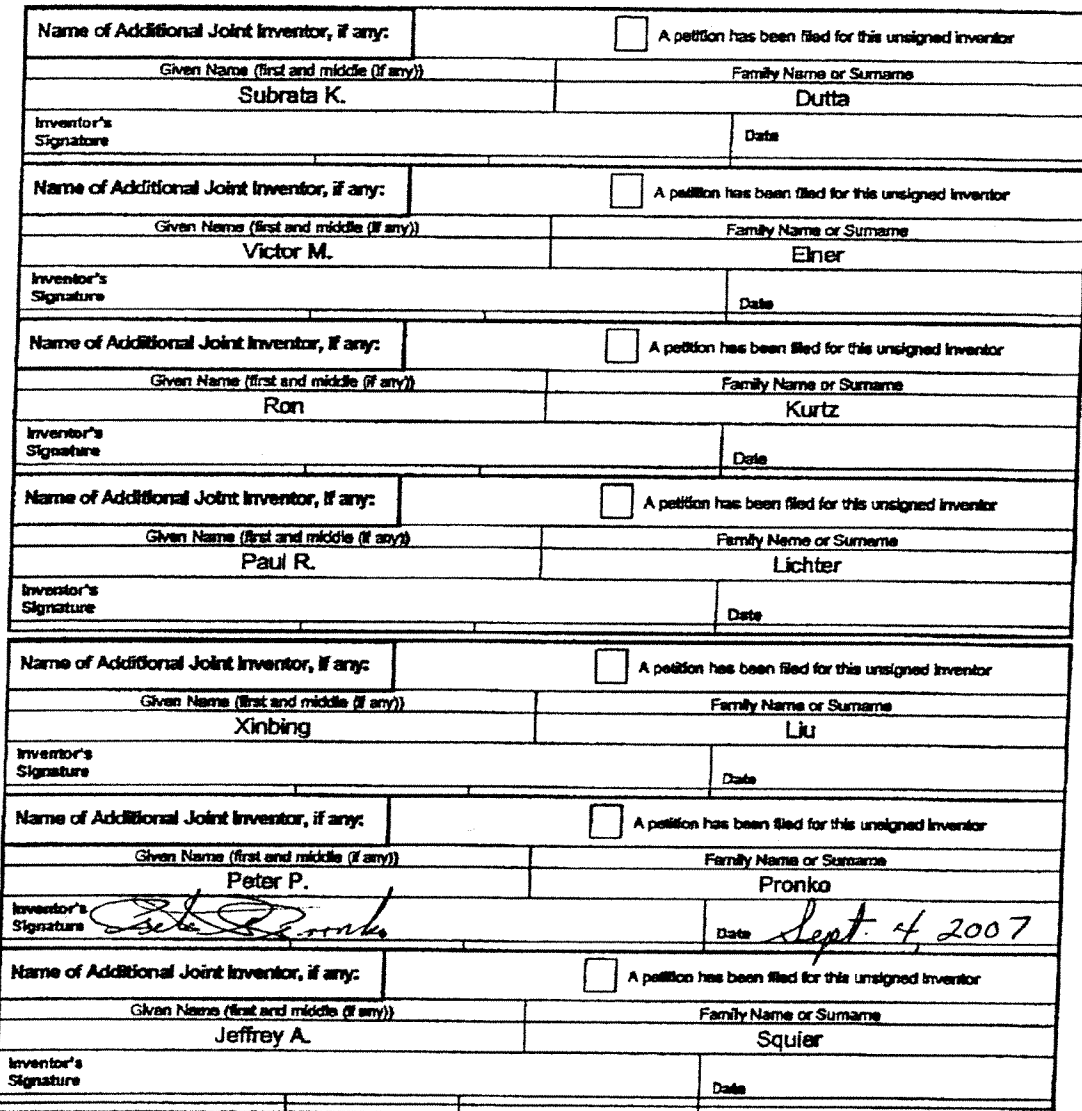 Name of Additional Joint Inventor, if any: A petition has been filed for this unsigned inventor
Given Name (first and middle (if any)) Family Name or Surname
Subrata K. Dutta
Inventor's
Signature Date
Name of Additional Joint Inventor, if any: A petition has been filed for this unsigned inventor
Given Name (first and middle (if any)) Family Name or Surname
Victor M. Elner
Inventor's
Signature Date
Name of Additional Joint Inventor, if any: A petition has been filed for this unsigned inventor
Given Name (first and middle (if any)) Family Name or Surname
Ron Kurtz
Inventor's
Signature Date
Name of Additional Joint Inventor, if any: A petition has been filed for this unsigned inventor
Given Name (first and middle (if any)) Family Name or Surname
Paul R. Lichter
Inventor's
Signature Date
Name of Additional Joint Inventor, if any: A petition has been filed for this unsigned inventor
Given Name (first and middle (if any)) Family Name or Surname
Xinbing Liu
Inventor's
Signature Date
Name of Additional Joint Inventor, if any: A petition has been filed for this unsigned inventor
Given Name (first and middle (if any)) Family Name or Surname
Peter P. Pronko
Inventor's
Signature Peter P. Pronko Date Sept. 4, 2007
Name of Additional Joint Inventor, if any: A petition has been filed for this unsigned inventor
Given Name (first and middle (if any)) Family Name or Surname
Jeffrey A. Squier
Inventor's
Signature Date